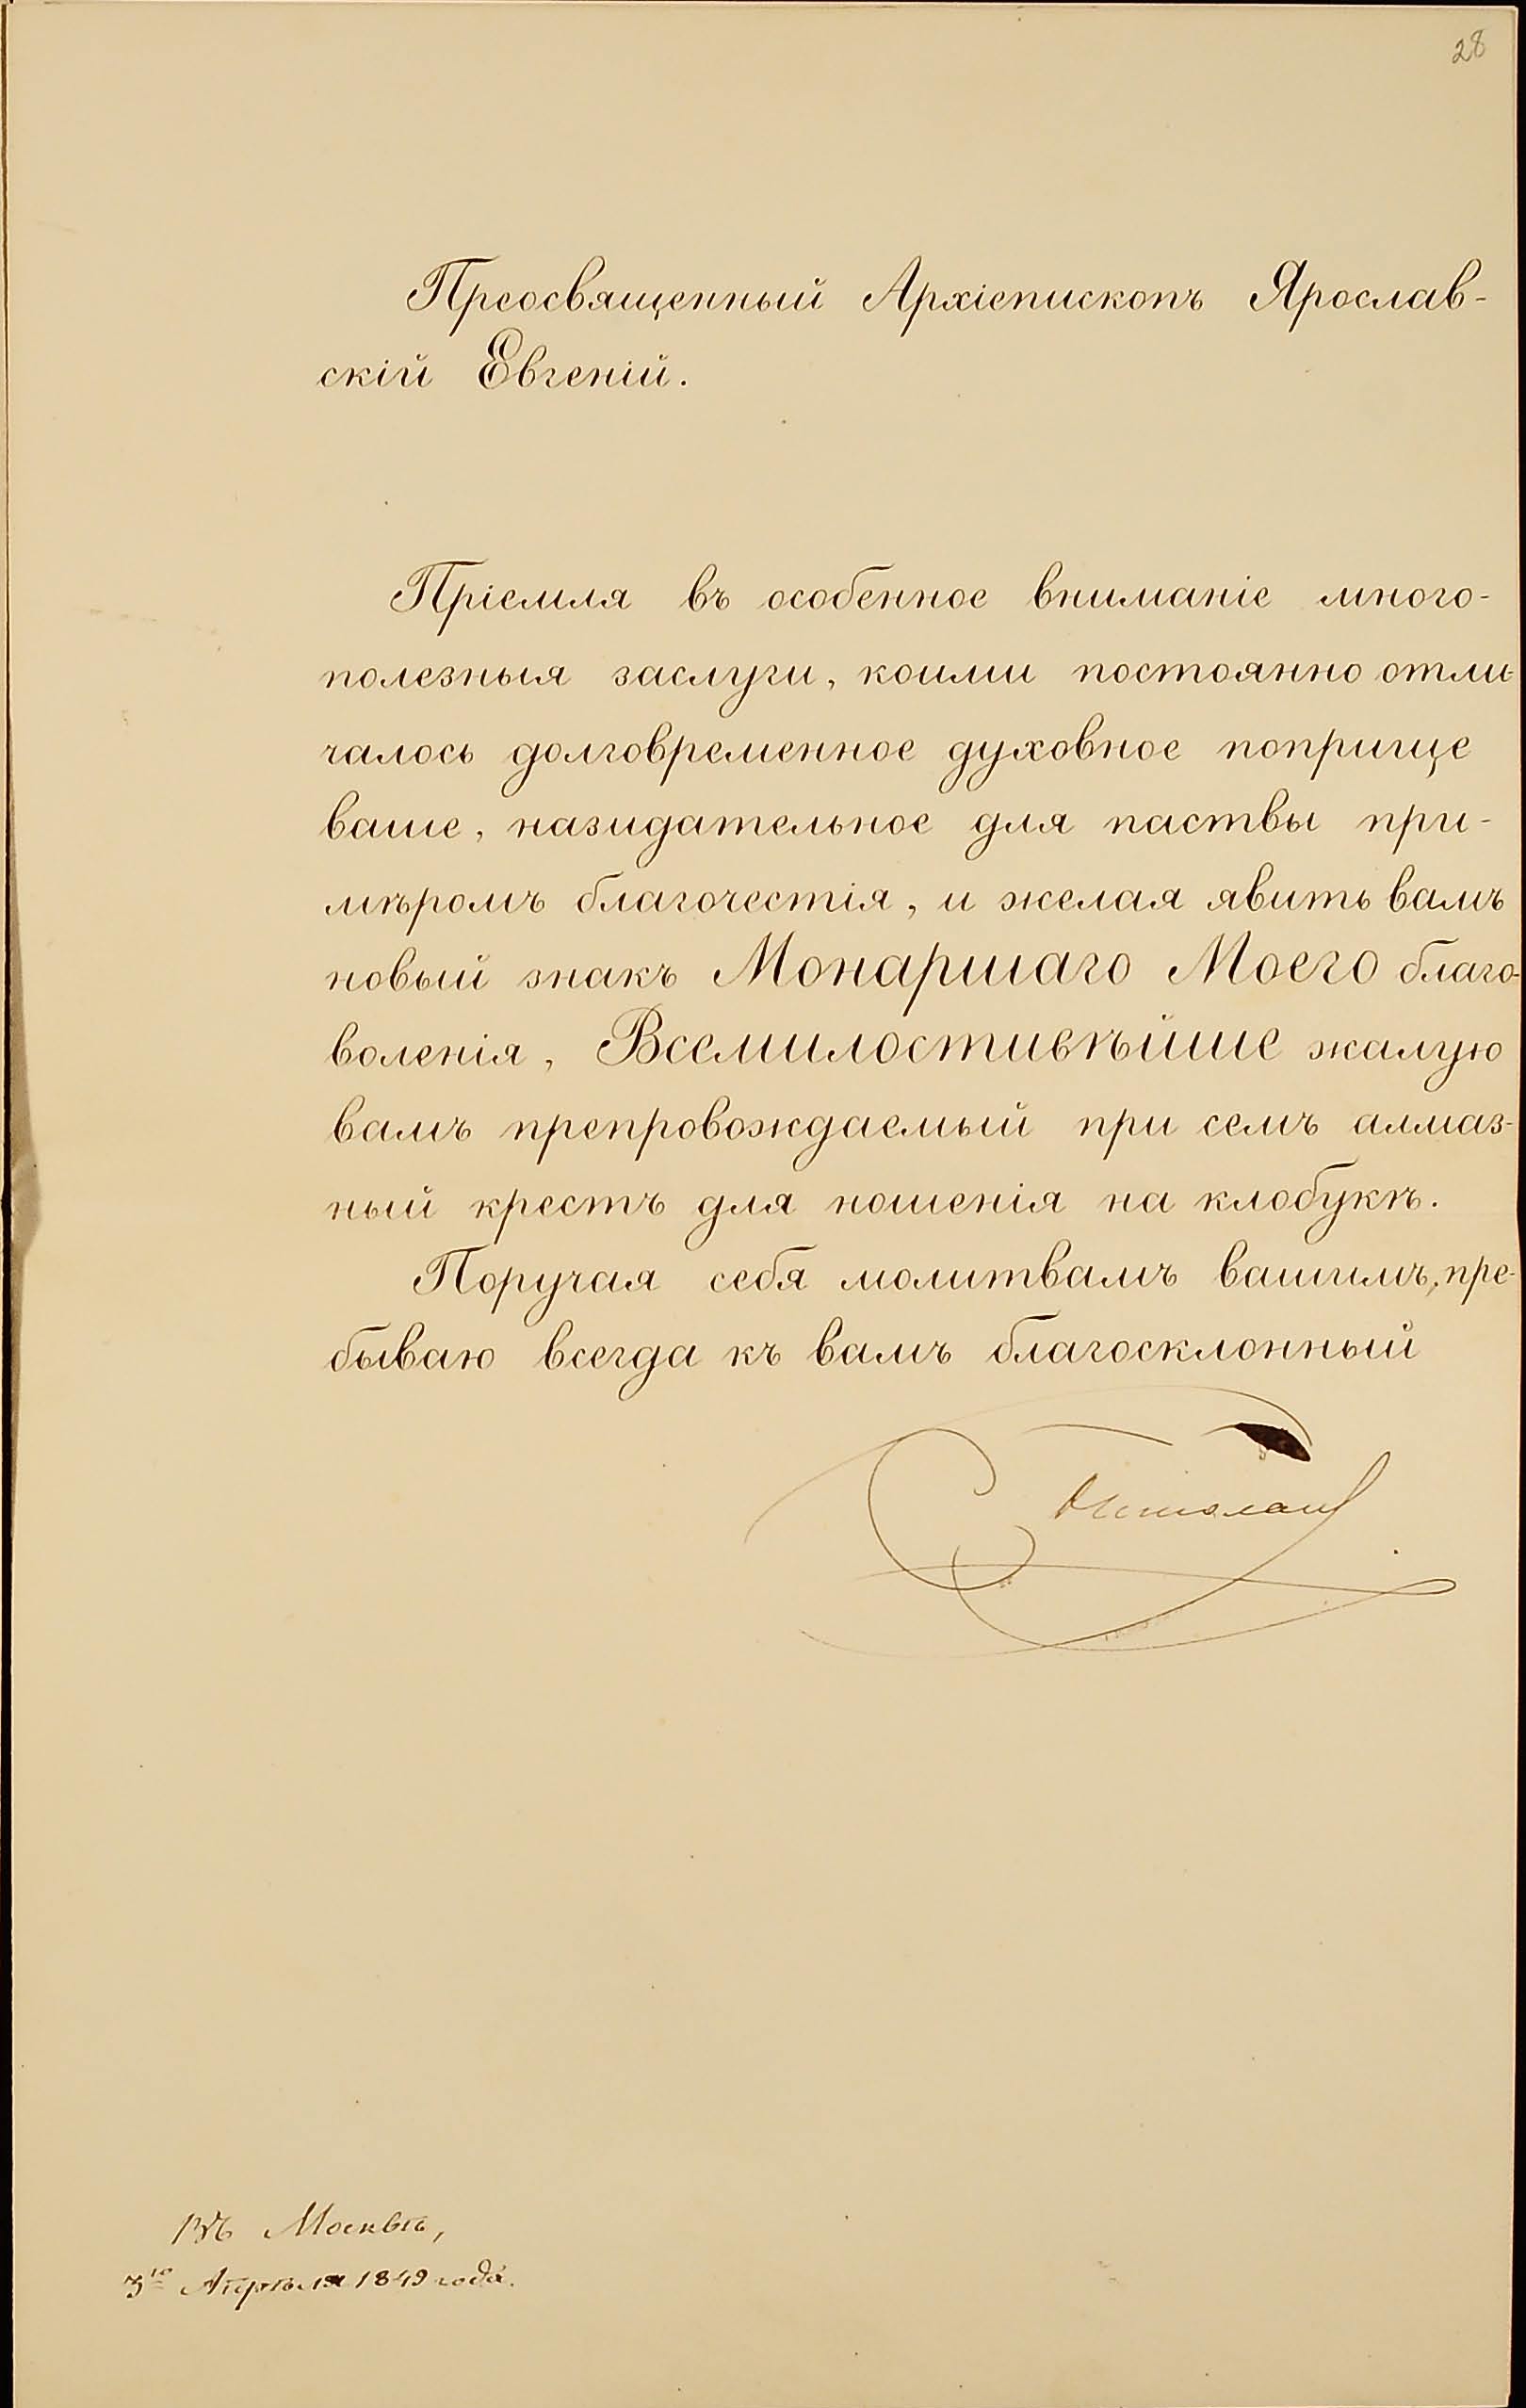 28
Преосвященный Архіепископъ Ярослав-
скій Евгеній.
Пріемля въ особенное вниманіе много-
полезныя заслуги, коими постоянно отли-
чалось долговременное духовное поприще
ваше, назидательное для паствы при-
мѣромъ благочестія, и желая явить вамъ
новый знакъ Монаршаго Моего благо-
воленія, Всемилостивѣйше жалую
вамъ препровождаемый при семъ алмаз-
ный крестъ для ношенія на клобукѣ.
Поручая себя молитвамъ вашимъ, пре-
бываю всегда къ вамъ благосклонный
Николай
Въ Москвѣ,
3го Апрѣля 1849 года.